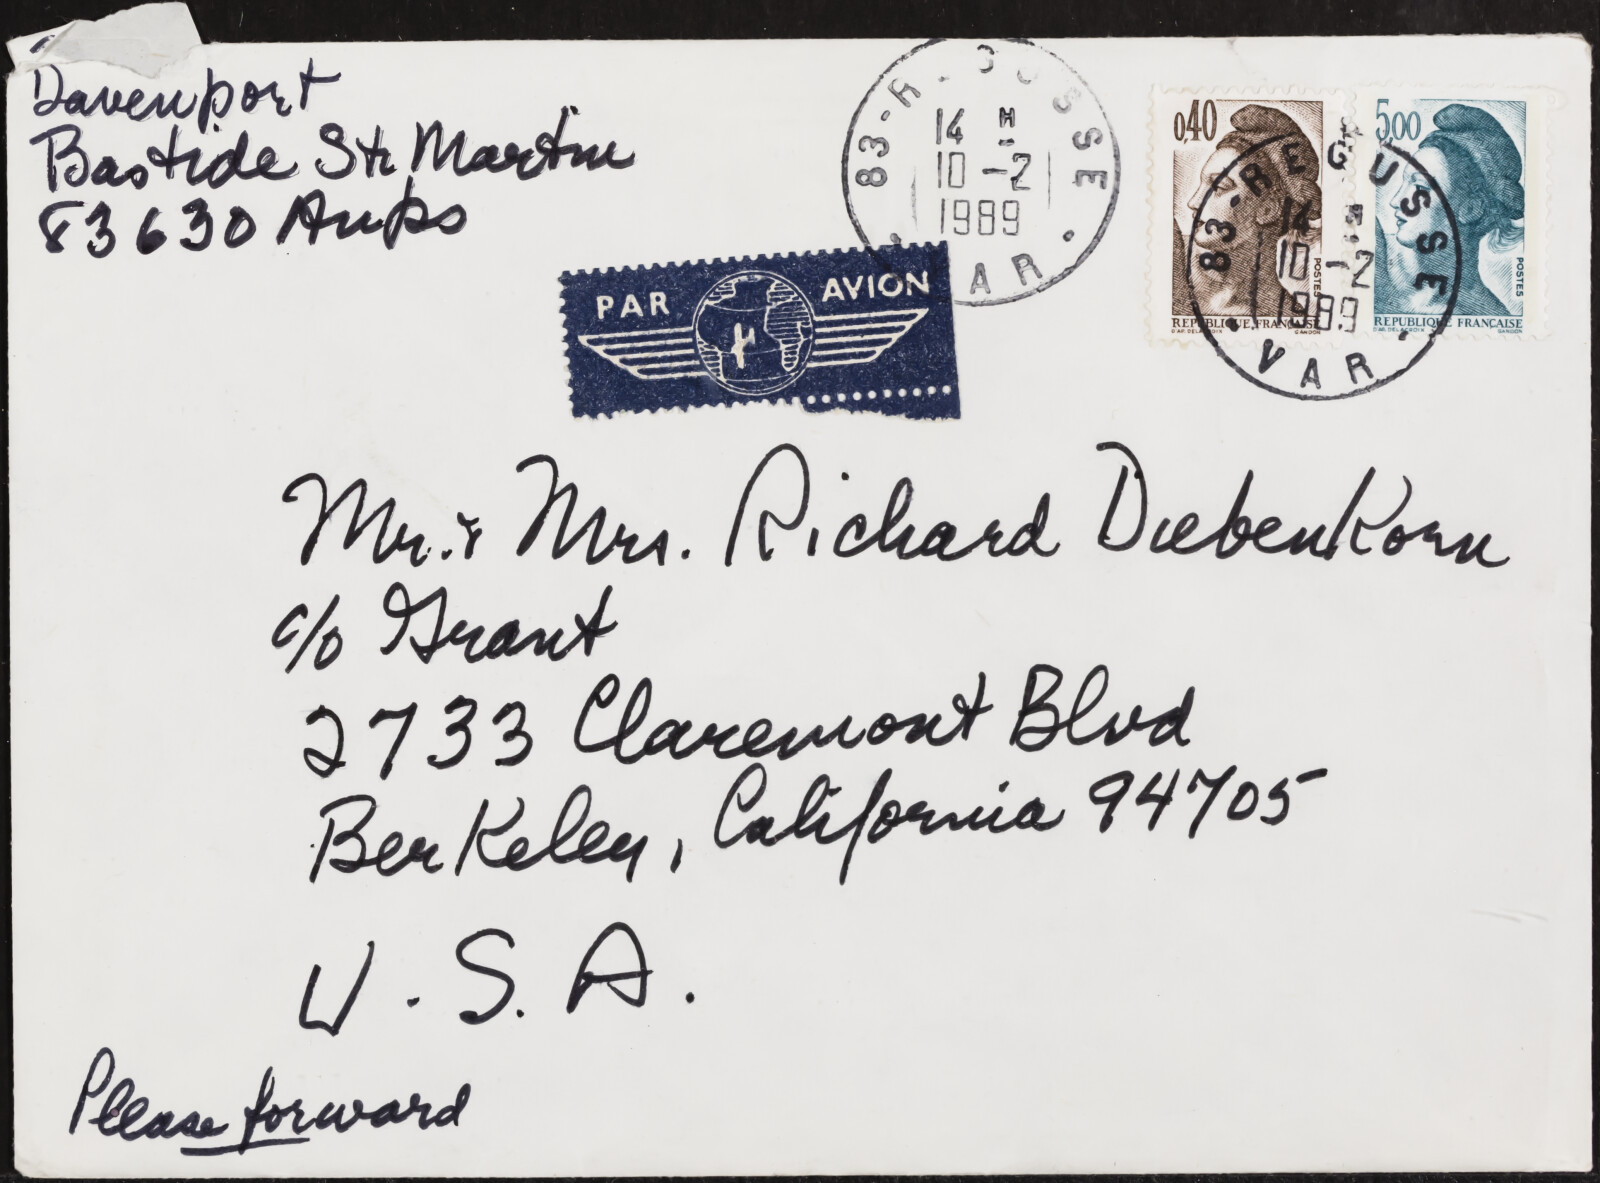 Davenport
Bastide St. Martin
83630 Aups
83-R GUSSE
14 H
10-2
1989
VAR
0,40
POSTES
REPUBLIQUE FRANCAISE
D'AP. DELACROIX GANDON
5,00
POSTES
REPUBLIQUE FRANCAISE
D'AP. DELACROIX GANDON
83-REGUSSE
14 H
10-2
1989
VAR
PAR AVION
Mr. & Mrs. Richard Diebenkorn
c/o Grant
2733 Claremont Blvd
Berkeley, California 94705
U.S.A.
Please forward